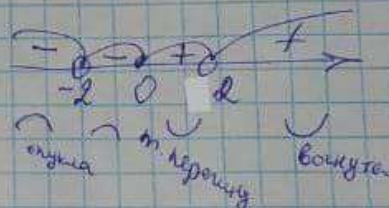 - - + +
-2 0 2
опукла т. перегину вогнута